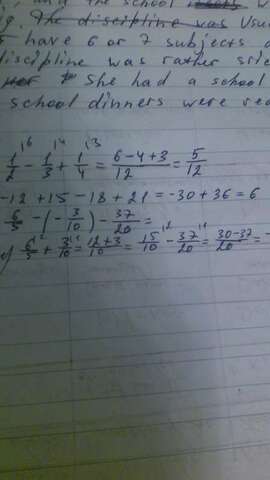 and the school w
The discipline was Usu
have 6 or 7 subjects
discipline was rather
She had a school
school dinners were rea
1/2 - 1/3 + 1/4 = 6-4+3/12 = 5/12
-12 +15 -18 +21 = -30 +36 = 6
6/5 - (-3/10) - 37/20 =
6/5 + 3/10 = 12+3/10 = 15/10 - 37/20 = 30-37/20 = -